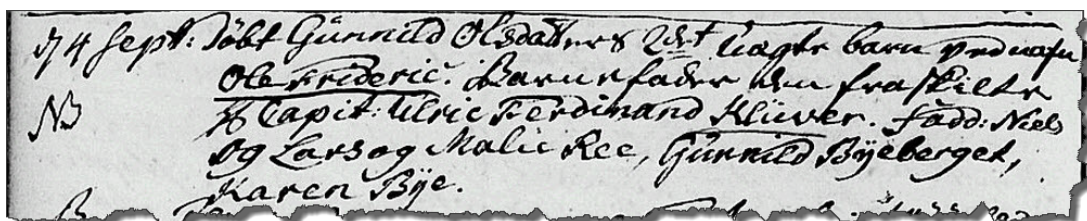 d 4 Sept: Døbt Gunnild Olsdatters 2det uægte barn ved nafn
Ole Frideric. Barnefader den fraskilte
NB Capit: Ulric Ferdinand Klüwer. Fadd: Niels
og Lars og Malie Ree, Gunnild Byeberget,
Karen Bye.